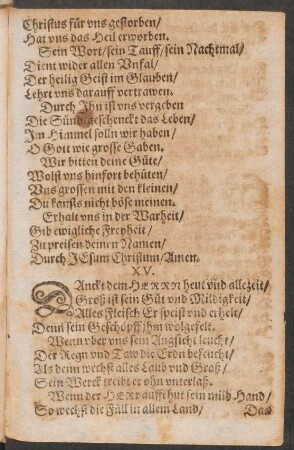 Christus für vns gestorben/
Hat vns das Heil erworben.
Sein Wort/sein Tauff/sein Nachtmal/
Dient wider allen Vnfal/
Der heilig Geist im Glauben/
Lehrt vns darauff vertrawen.
Durch Ihn ist vns vergeben
Die Sünd/geschenckt das Leben/
Im Himmel solln wir haben/
O Gott wie grosse Gaben.
Wir bitten deine Güte/
Wolst vns hinfort behüten/
Vns grossen mit den kleinen/
Du kansts nicht böse meinen.
Erhalt vns in der Warheit/
Gib ewigliche Freyheit/
Zu preisen deinen Namen/
Durch JEsum Christum/Amen.
XV.
DAnckt dem HERRN heut vnd allezeit/
Groß ist sein Güt vnd Mildigkeit/
Alles Fleisch Er speist vnd erhelt/
Denn sein Geschöpff ihm wolgefelt.
Wenn vber vns sein Angsicht leucht/
Der Regn vnd Taw die Erdn befeucht/
Als denn wechst alles Laub vnd Graß/
Sein Werck treibt er ohn vnterlaß.
Wenn der HERR auffthut sein milb Hand/
So wechst die Füll in allem Land/
Das